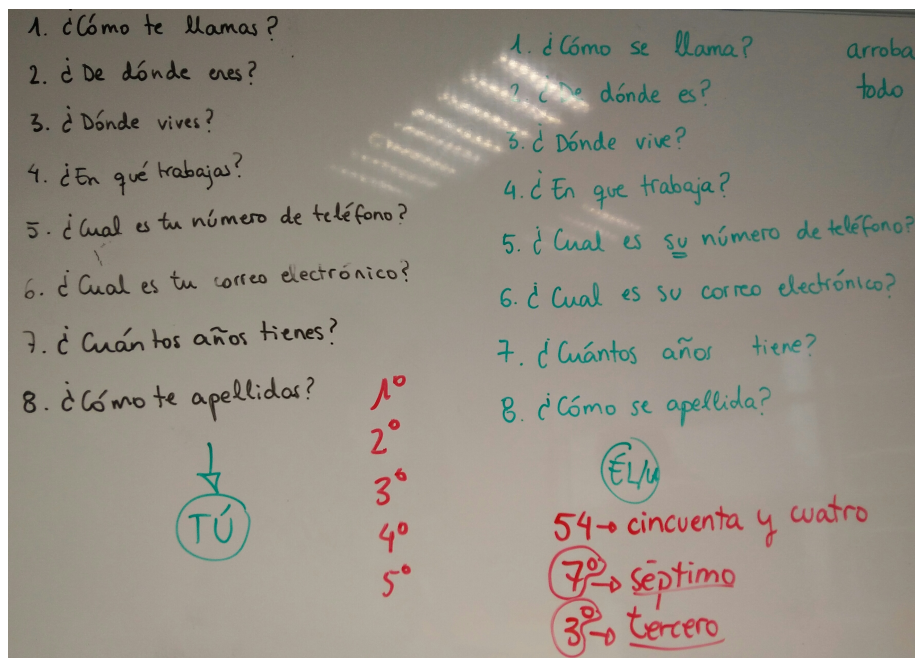 1. ¿Cómo te llamas?
2. ¿De dónde eres?
3. ¿Dónde vives?
4. ¿En qué trabajas?
5. ¿Cual es tu número de teléfono?
6. ¿Cual es tu correo electrónico?
7. ¿Cuántos años tienes?
8. ¿Cómo te apellidas?
TÚ
1º
2º
3º
4º
5º
1. ¿Cómo se llama?
2. ¿De dónde es?
3. ¿Dónde vive?
4. ¿En que trabaja?
5. ¿Cual es su número de teléfono?
6. ¿Cual es su correo electrónico?
7. ¿Cuántos años tiene?
8. ¿Cómo se apellida?
arroba
todo
54→ cincuenta y cuatro
7º→ séptimo
3º→ tercero